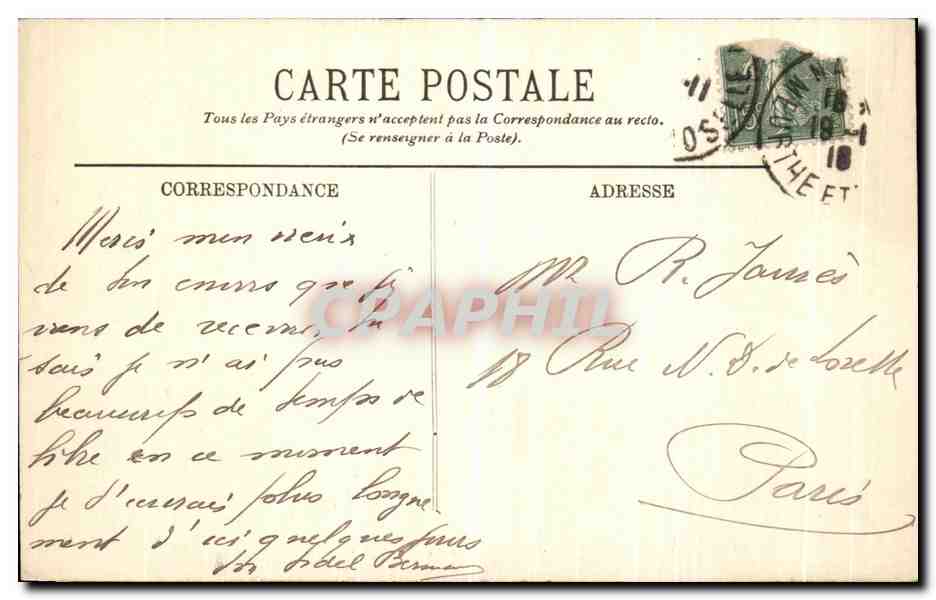 CARTE POSTALE
Tous les Pays étrangers n'acceptent pas la Correspondance au recto.
(Se renseigner à la Poste).
CORRESPONDANCE
ADRESSE
Merci mon vieux
de ton envois que je
viens de recevoir, tu
sais je n'ai pas
beaucoup de temps de
libre en ce moment
je t'écrirais plus longue
ment d'ici quelques jours
ton fidel
Mr R. Jaurès
18 Rue N. D. de Lorette
Paris
CPAPHIL
11
18
18 - 1
18